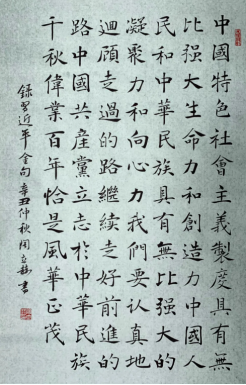 中國特色社會主義制度具有無
比强大生命力和創造力中國人
民和中華民族具有無比强大的
凝聚力和向心力我們要認真地
迴顧走過的路繼續走好前進的
路中國共產黨立志於中華民族
千秋偉業百年恰是風華正茂
錄習近平金句辛丑仲秋閆立
書